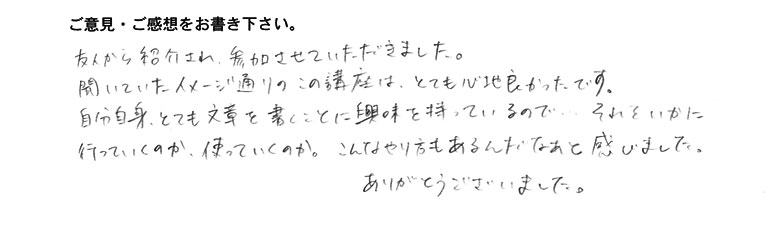 ご意見・ご感想をお書き下さい。
友人から紹介され、参加させていただきました。
聞いていたイメージ通りのこの講座は、とても心地良かったです。
自分自身、とても文章を書くことに興味を持っているので… それをいかに
行っていくのか、使っていくのか。こんなやり方もあるんだなあと感じました。
ありがとうございました。